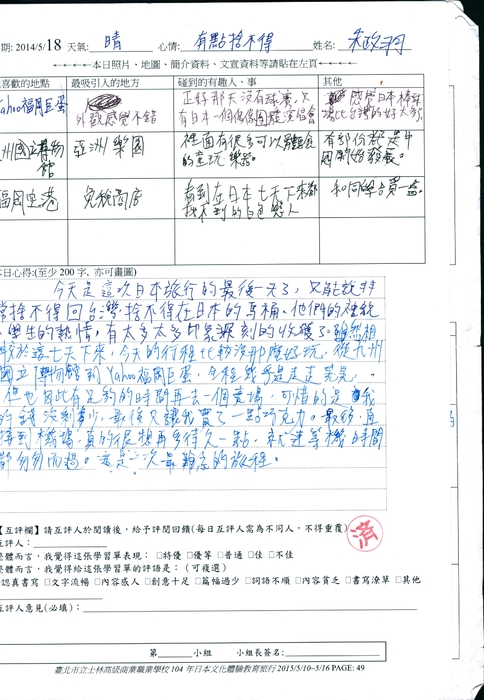 期: 2014/5/18 天氣: 晴 心情: 有點捨不得 姓名:
←←←←本日照片、地圖、簡介資料、文宣資料等請貼在左頁←←←←
喜歡的地點 最吸引人的地方 碰到的有趣人、事 其他
Yahoo福岡巨蛋 外觀感覺不錯 正好那天沒有球賽,只有日本一個偶像團體演唱會 感覺日本棒球場比台灣的好太多
州國立博物館 亞洲樂園 裡面有很多可以體驗的童玩 樂器。 有部份都是中國
福岡空港 免稅商店 看到在日本七天下來都找不到的白色戀人 和同學合買一盒。
本日心得:(至少 200 字, 亦可畫圖)
今天是這次日本旅行的最後一天了,又
常捨不得回台灣,捨不得在日本的馬桶、他們的
學生的熱情,有太多太多印象深刻的收穫了。雖然相
較於這七天下來,今天的行程比較沒那麼好玩,從九州
國立博物館到Yahoo福岡巨蛋,全程幾乎是走走晃晃,
但也因此有足夠的時間再去一個賣場,可惜的是我
的錢沒剩多少,最後只讓我買了一點巧克力。最後,直
達到機場,真的很想再多待久一點,就連等機時間
都匆匆而過。這是一次最難忘的旅程。
【互評欄】請互評人於閱讀後,給予評閱回饋(每日互評人需為不同人,不得重覆)
済
互評人:
整體而言,我覺得這張學習單表現: □特優 □優等 □普通 □佳 □不佳
整體而言,我覺得給這張學習單的評語是: (可複選)
認真書寫 □文字流暢 □內容感人 □創意十足 □篇幅過少 □詞語不順 □內容貧乏 □書寫潦草 □其他
互評人意見(必填):
第 小組 小組長簽名:
臺北市立士林高級商業職業學校 104 年日本文化體驗教育旅行 2015/5/10~5/16 PAGE: 49